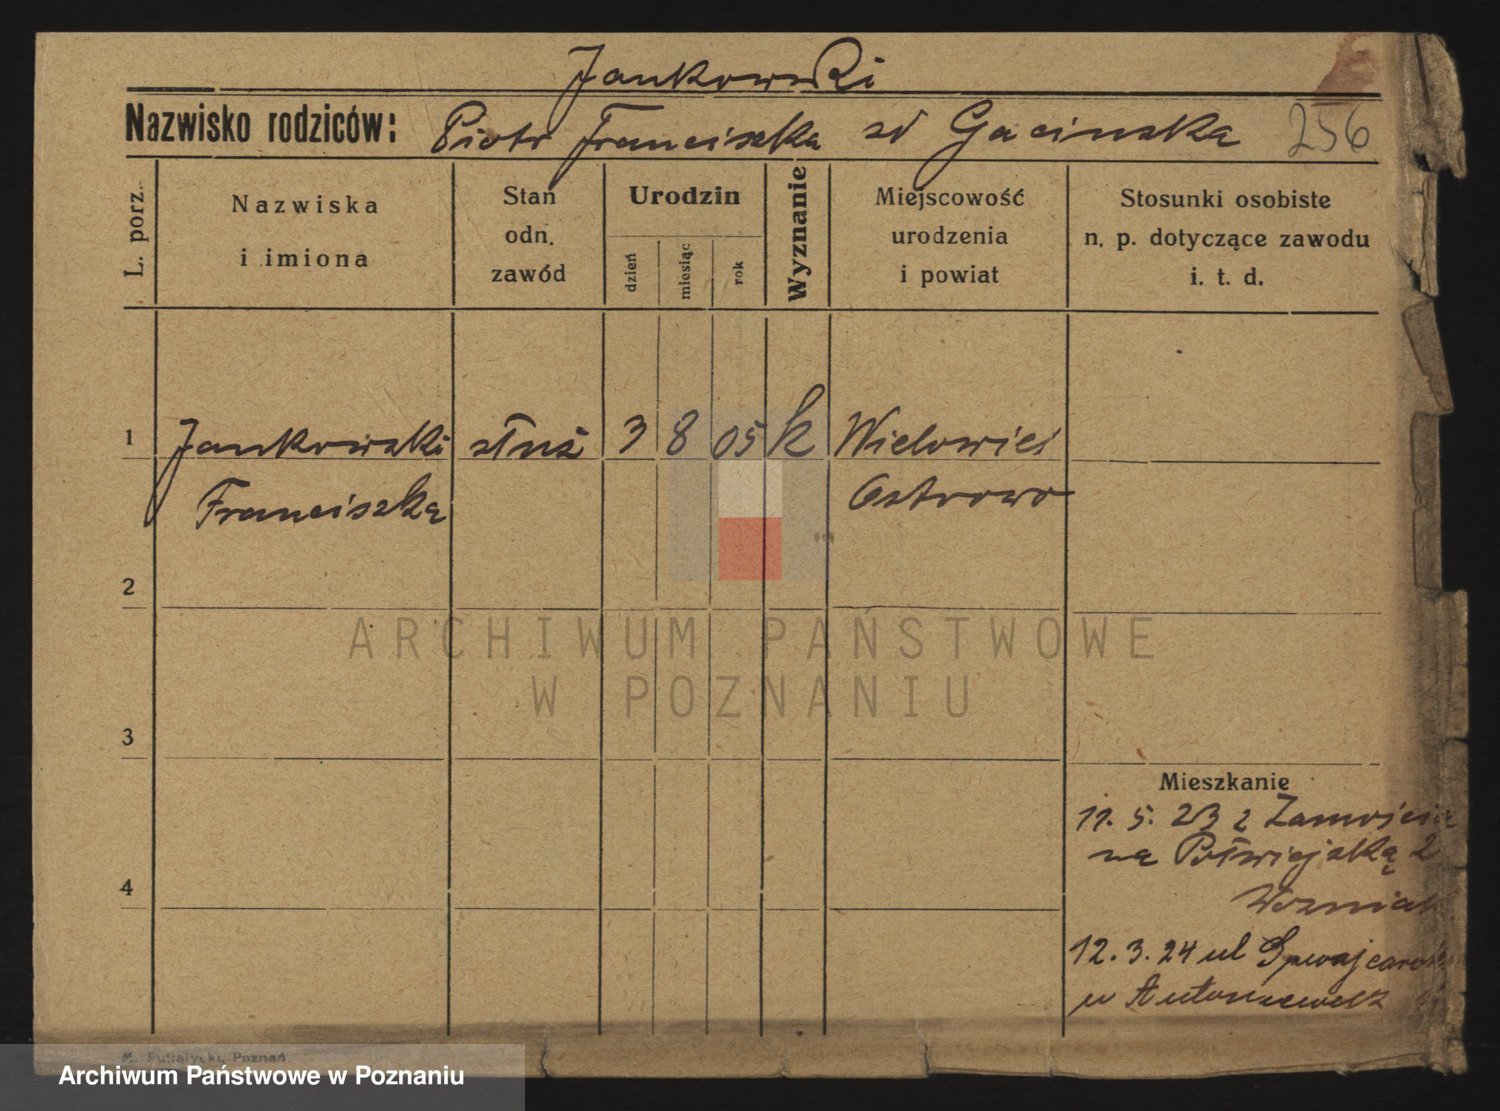 Jankowski
Nazwisko rodziców: Piotr Franciszka zd Gacinska 256
L. porz.
Nazwiska
i imiona
Stan
odn.
zawód
Urodzin
dzień
miesiąc
rok
Wyznanie
Miejscowość
urodzenia
i powiat
Stosunki osobiste
n. p. dotyczące zawodu
i. t. d.
1 Jankowski służ 3 8 05 k Wielowieś
Franciszka Ostrowo
2
3
4
Mieszkanie
11. 5. 23 z Zamościa
na Półwiejską 2
Wozniak
12. 3. 24 ul
w
ARCHIWUM PAŃSTWOWE
W POZNANIU
Poznań
Archiwum Państwowe w Poznaniu